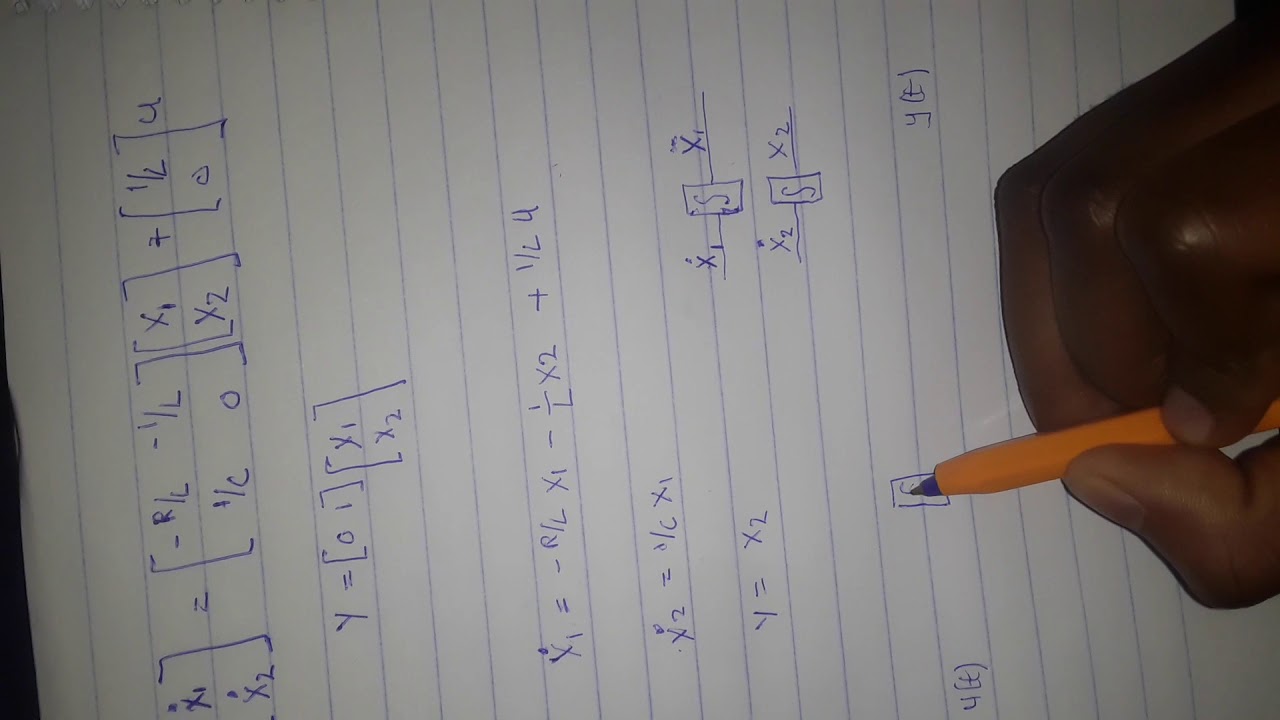 [ẋ1 ẋ2] = [-R/L -1/L 1/C 0] [x1 x2] + [1/L 0] u
Y = [0 1] [x1 x2]
ẋ1 = -R/L x1 - 1/L x2 + 1/L u
ẋ2 = 1/C x1
ẋ1 ∫ x1
y = x2
ẋ2 ∫ x2
u(t) y(t)